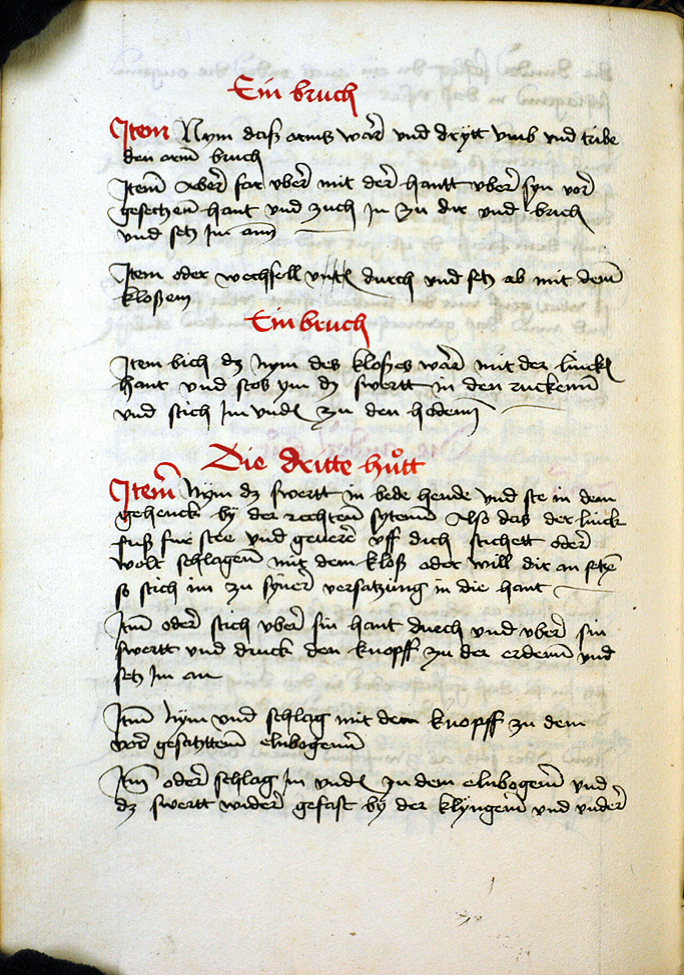 Ein bruch
Item Nym das arms war und drytt umb und tribe
den arm bruch
Item Aber far uber mit der hantt uber syn vor
gesetzen hant und zuch in zu dir und bruch
und setz im ann
Item oder wechsell durch und setz ab mit dem
kloßem
Ein bruch
Item bich dz nym des kloßes war mit der linck
hant und stos ym dz swertt in den ruckenn
und stich im und zu den hodenn
Die dritte hůtt
Item Nym dz swertt in bede hende und ste in dem
gehenck by der rechten sytenn Also das der linck
fuß fur stee und gevere uff dich stichett oder
wolt schlagenn mit dem kloß oder will dir an setzen
so stich im zu syner versatzung in die hant
Itm oder stich uber sin hant durch und uber sin
swertt und druck den knopff zu der erdenn und
setz im an
Itm Nym und schlag mit dem knopff zu dem
vor gesatzttem elnbogenn
Itm oder schlag im und zu dem elnbogenn und
dz swertt wider gefast by der klyngenn und under